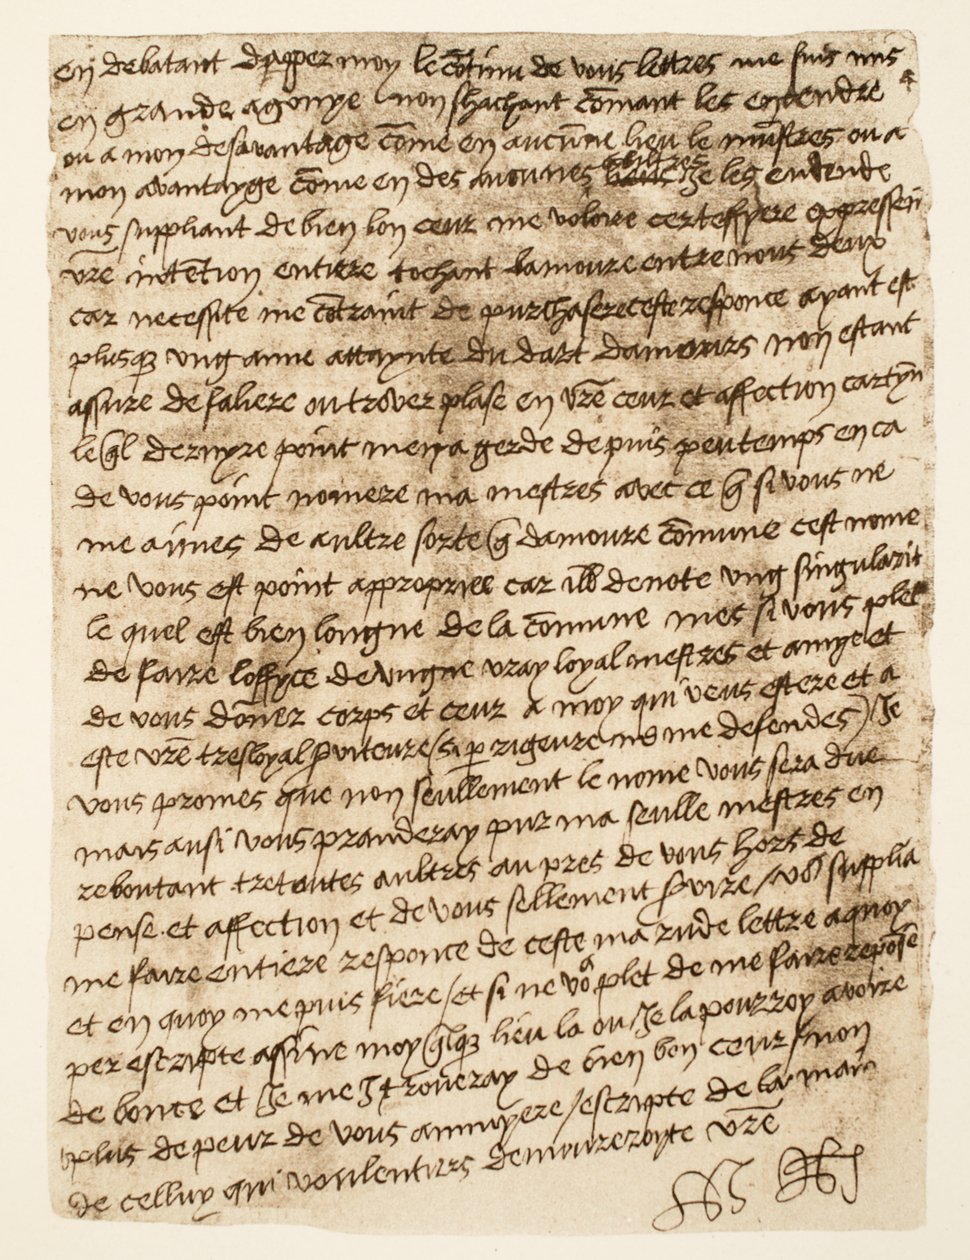 en debatant dapper moy le cõtinu de vous lettres me suis mis
en grande agonye non shachant cõmant les entendre
ou a mon desavantage cõme en aucũne lieu le mũstres ou a
mon avantayge cõme en des aucunes aultres je les endende
vous suppliant de bien bon ceur me voloire certeffyere expressen
vr̃e intẽtion entiere tochant lamoure entre nous deux
car necessite me cõtraint de purchasere ceste responce ayant est
plusque ung anne attaynte du dart damours non estant
assure de faliere ou trover plase en vr̃e ceur et affection cartyñ
le ql dernyre point menya gerde depuis peu temps en ca
de vous point nomere ma mestres avec ce q̃ si vous ne
me aimes de aultre sorte q̃ damoure cõmune cest nome
ne vous est point appropriee car ill denote ung singularit
le quel est bien longne de la cõmune mes si vous plet
de faire loffyce de ungne vray loyal mestres et amye et
de vous dõner corps et ceur a moy qui veus estere et a
este vr̃e tresloyal serviteure (si per rigeure ne me defendes) Je
vous promes que non seullement le nome vous sera due
mais ausi vous pranderay pur ma seulle mestres en
reboutant tretoutes aultres au pres de vous hors de
pense et affection et de vous sellement servire / vos supplia
me faire entiere responce de ceste ma rude lettre a quoy
et en quoy me puis fiere / et si ne vos plet de me faire repõse
per escripte assine moy qlque lieu la ou Je la pourroy avoire
de bouce et Je me Jtroveray de bien bon ceur / non
plus de peur de vous annuyere / escripte de la main
de celluy qui voulentiers demoureroyte vr̃e